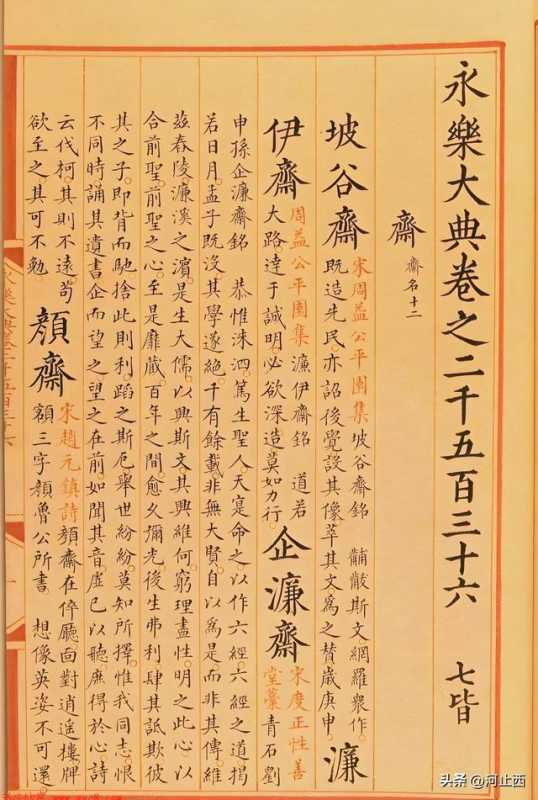 永樂大典卷之二千五百三十六 七皆
齋 齋名十二
坡谷齋
宋周益公平園集坡谷齋銘 黼黻斯文網羅衆作。
既造先民。亦詔後覺設其像萃其文為之賛歲庚申。
濂
伊齋
周益公平園集濂伊齋銘 道若
大路達于誠明。必欲深造莫如力行
企濂齋
宋度正性善
堂藁 青石劉
申孫企濂齋銘 恭惟洙泗。篤生聖人。天寔命之以作六經。六經之道揭
若日月。孟子既没其學遂絶千有餘載。非無大賢自以為是而非其傳維
兹舂陵濂溪之濵是生大儒。以興斯文其興維何。窮理盡性。明之此心。以
合前聖。前聖之心。至是靡藏百年之間愈乆彌光後生弗利肆其詆欺彼
其之子。即背而馳捨此則利蹈之斯厄舉世紛紛。莫知所擇惟我同志。恨
不同時誦其遺書企而望之望之在前。如聞其音。虚已以聽庶得於心詩
云伐柯。其則不遠。苟
欲至之其可不勉。
顔齋
宋趙元鎮詩 顔齋在倅廳。面對逍遥樓。牌
額三字顔魯公所書 想像英姿不可還。
头条 @河止西